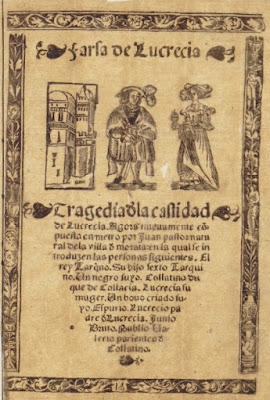 Farsa de Lucrecia
Tragedia d̃ la castidad
de Lucrecia. Agora nueuamente cõ-
puesta en metro por Juan pastor natu-
ral dela villa d̃ morata: en la qual se in
troduzen las personas siguientes. El
rey Tarq̃no. Su hijo sexto Tarqui
no. Un negro suyo. Colatino du
que de Colacia. Lucrecia su
muger. Un bouo criado su-
yo. Espurio Lucrecio pa
dre d̃ Lucrecia. Junio
Bruto. Publio Va
lerio parientes d̃
Colatino.